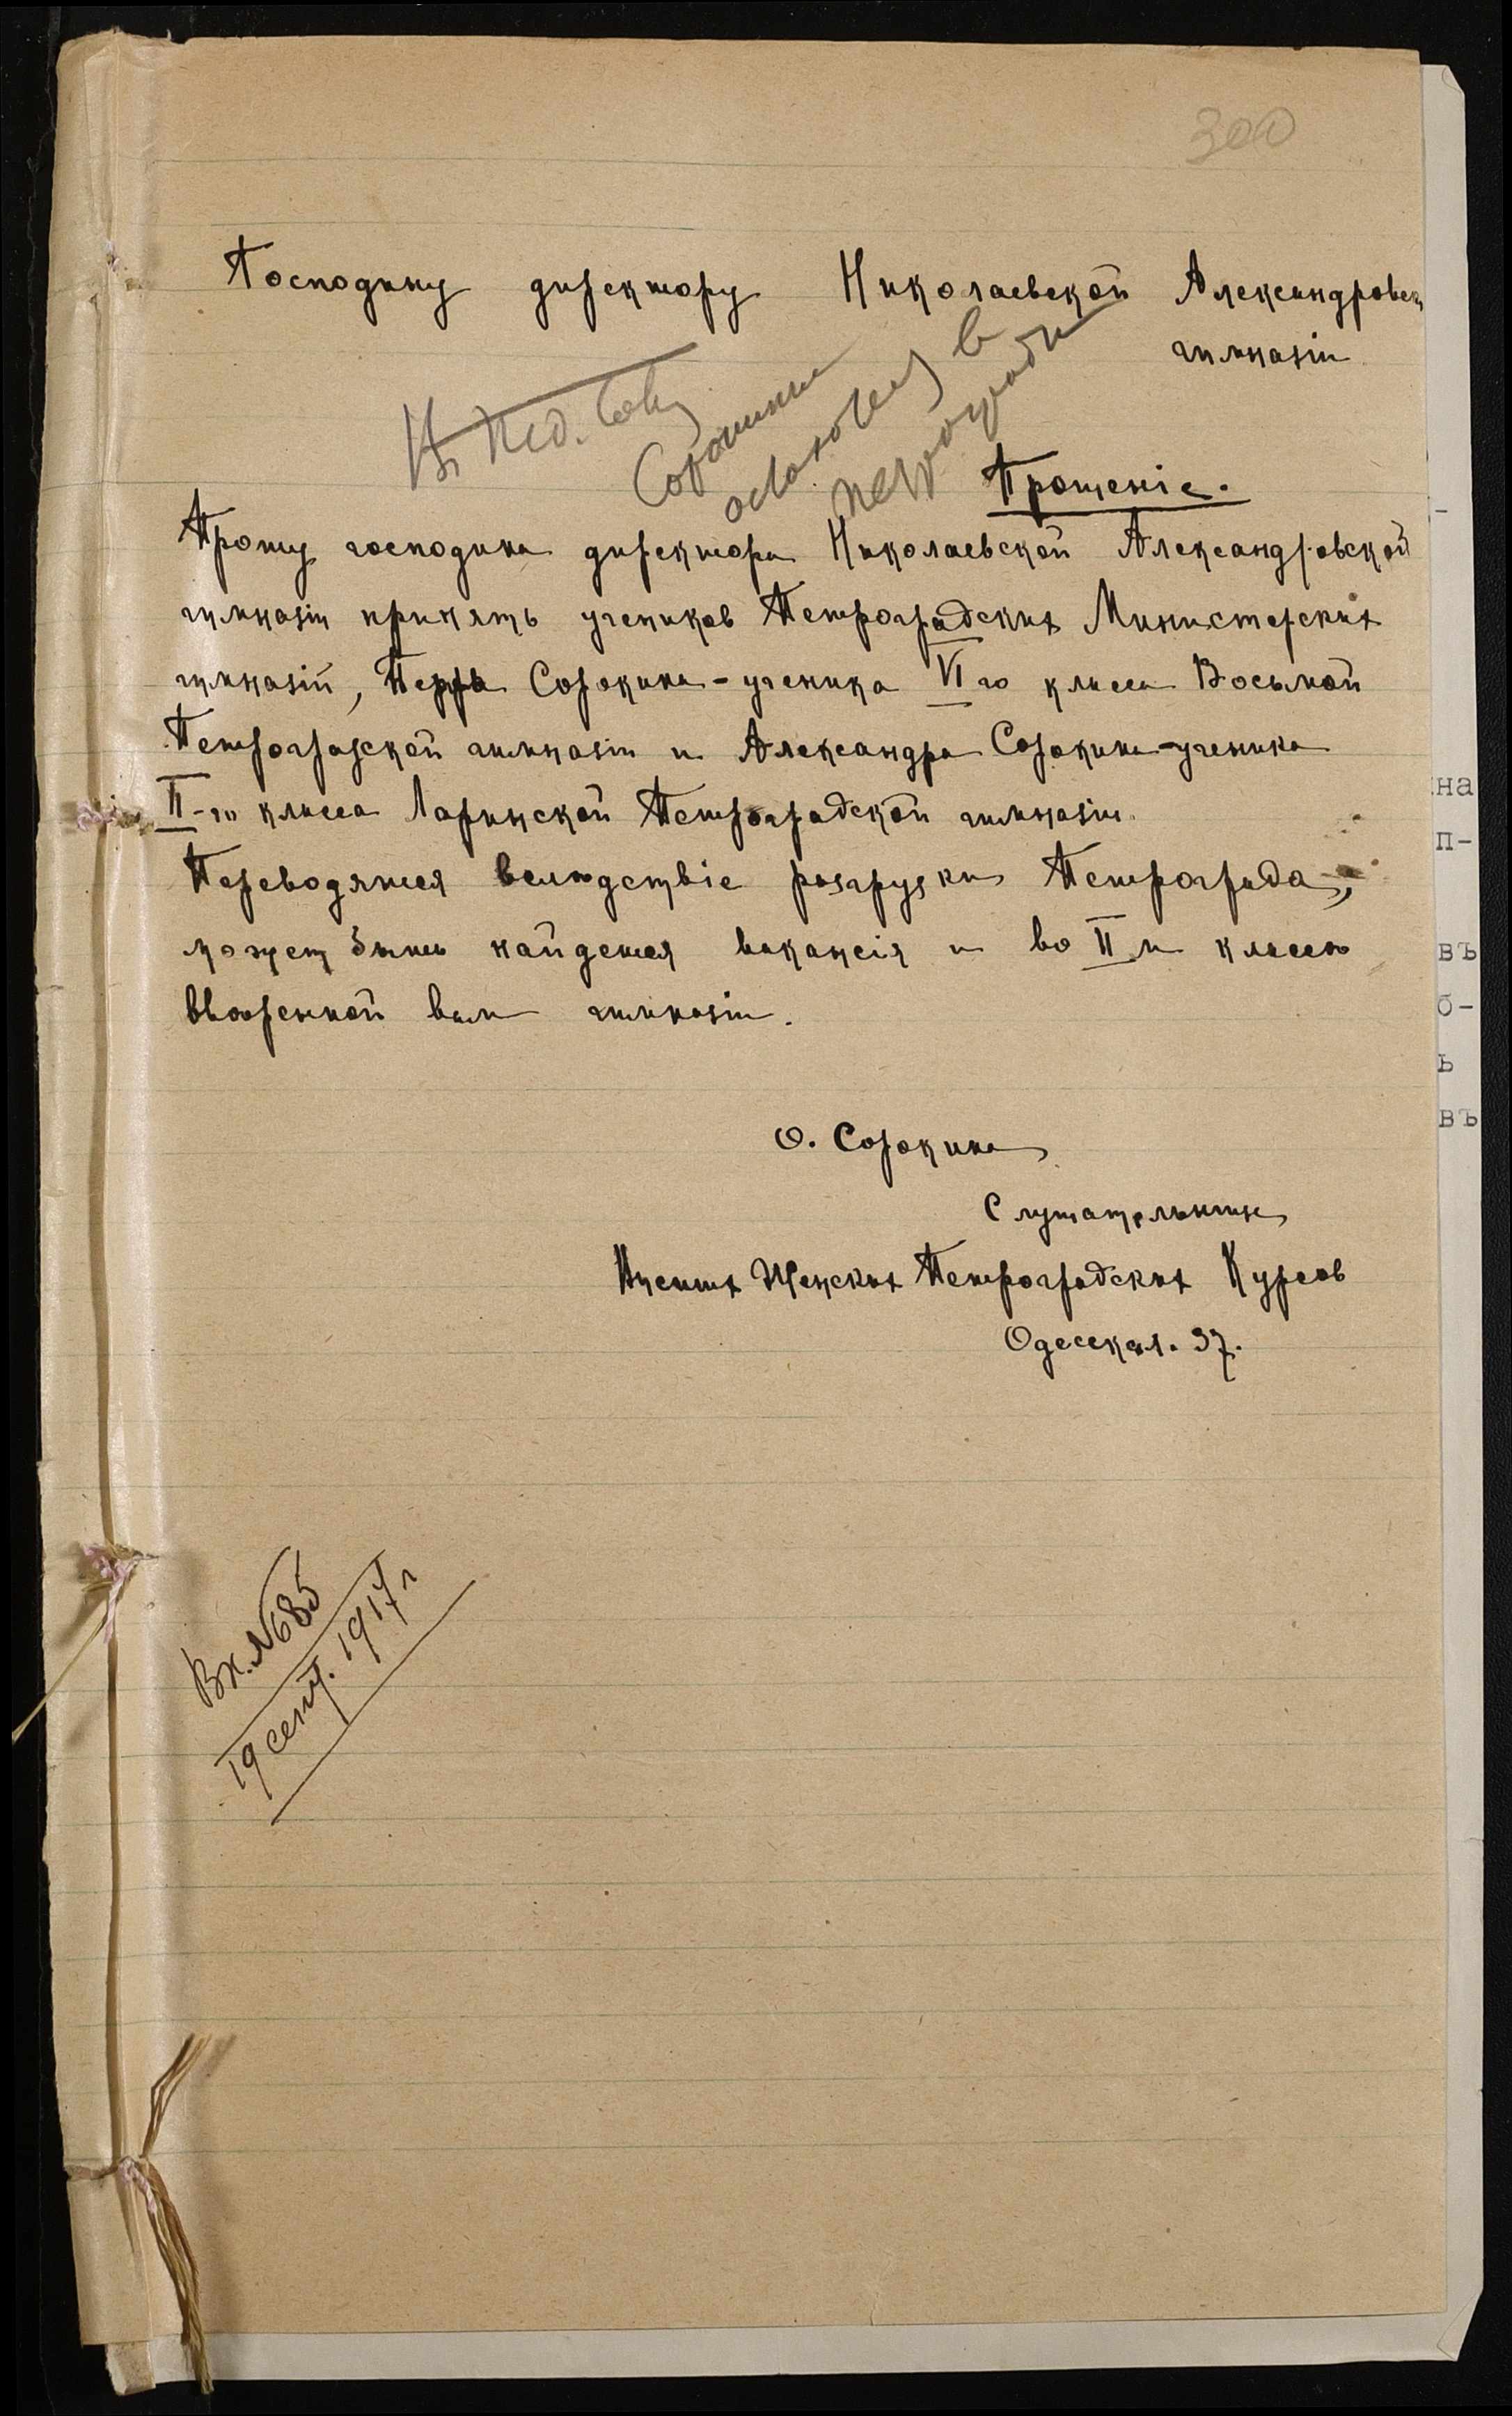 300
Господину директору Николаевской Александровск
гимназіи
Въ Пед. Сов.
Сорокины
остаются в
Петрограде
Прошеніе.
Прошу господина директора Николаевской Александровской
гимназіи принять учеников Петроградских Министерских
гимназій, Петра Сорокина - ученика VI го класса Восьмой
Петроградской гимназіи и Александра Сорокина - ученика
II - го класса Ларинской Петроградской гимназіи.
Переводятся вслѣдствіе разгрузки Петрограда,
может быть найдется вакансія и во II м классѣ
ввѣренной вам гимназіи.
О. Сорокина
Слушательница
Высших Женских Петроградских Курсов
Одесская. 37.
Вх. № 685
19 сент. 1917 г
на
п-
въ
б-
ь
въ